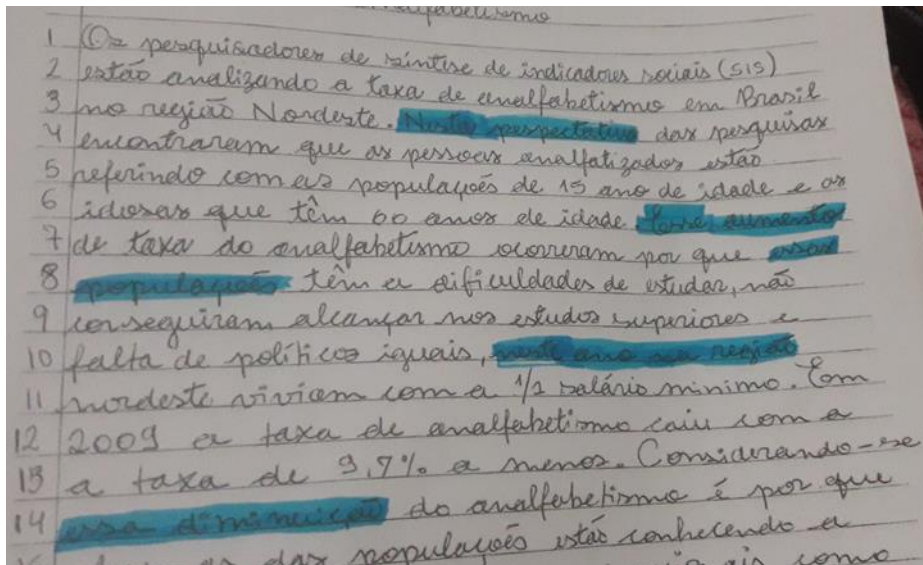 analfabetismo
1 Os pesquisadores de síntise de indicadores sociais (SIS)
2 estão analizando a taxa de analfabetismo em Brasil
3 no região Nordeste. Nesta perspectativa das pesquisas
4 encontraram que as pessoas analfatizados estão
5 referindo com as populações de 15 ano de idade e os
6 idiosas que têm 60 anos de idade. Esse aumento
7 de taxa do analfabetismo ocorreram por que essas
8 populações têm a dificuldades de estudar, não
9 conseguiram alcançar nos estudos superiores e
10 falta de políticas iguais, neste ano na região
11 nordeste viviam com a 1/2 salário minimo. Em
12 2009 a taxa de analfabetismo caiu com a
13 a taxa de 9,7% a menos. Considerando-se
14 essa diminuição do analfabetismo é por que
das populações estão conhecendo a
como